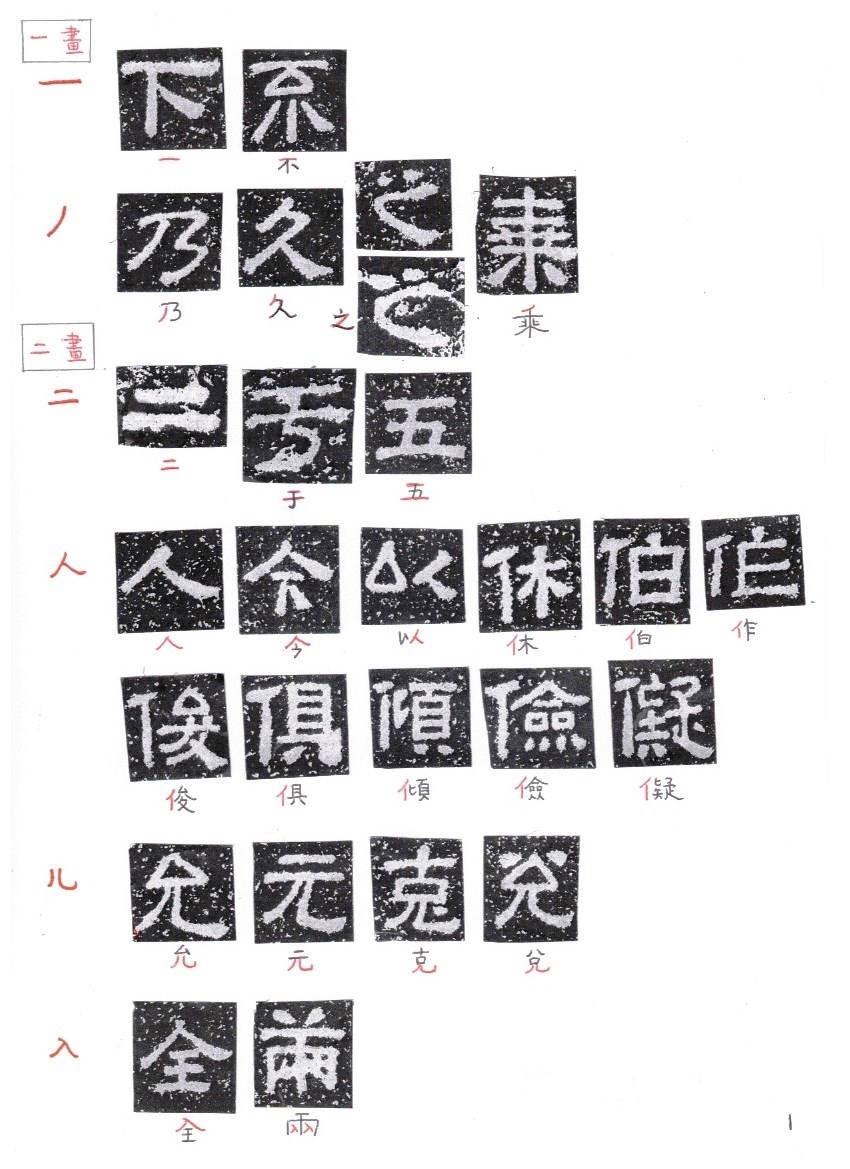 一畫
一 下 不
一 不
丿 乃 久 之 之 乘
乃 久 之 乘
二畫
二 二 于 五
二 于 五
人 人 今 以 休 伯 作
人 今 以 休 伯 作
俊 俱 傾 儉 儗
俊 俱 傾 儉 儗
儿 允 元 克 兌
允 元 克 兌
入 全 兩
全 兩
1